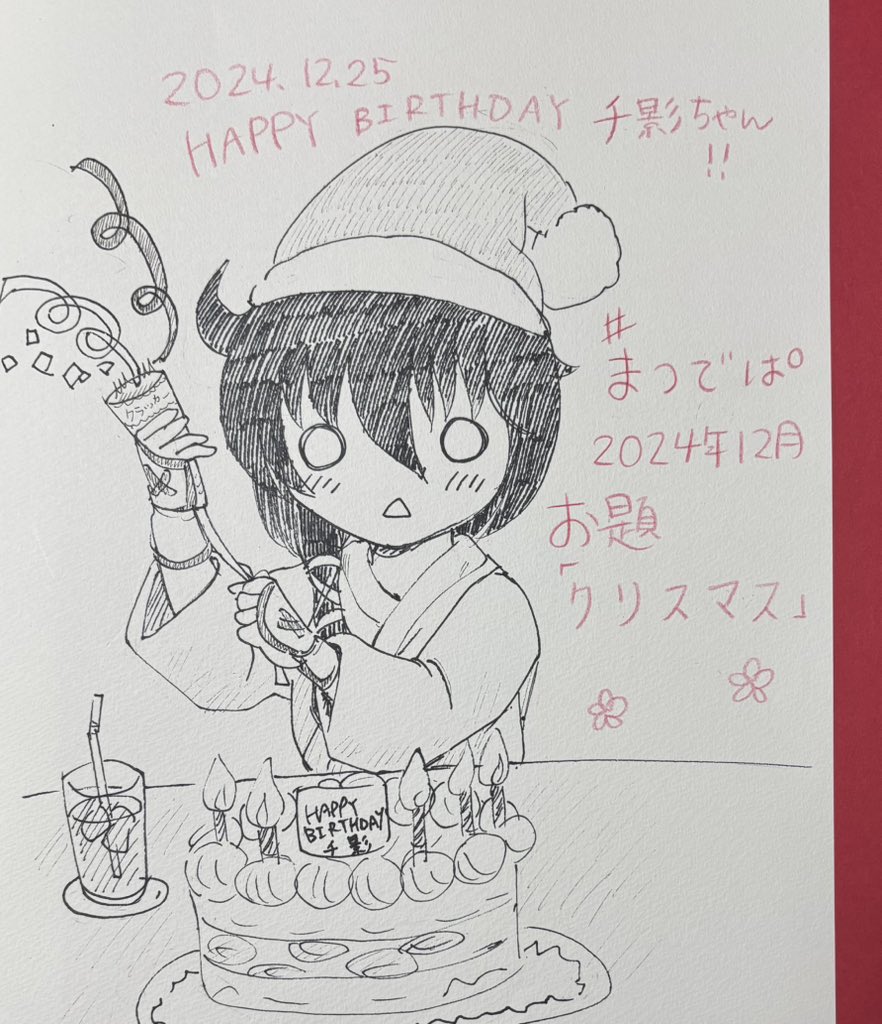 2024.12.25
HAPPY BIRTHDAY 千影ちゃん
!!
#
まつでぱ
2024年12月
お題
「クリスマス」
クラッカー
HAPPY
BIRTHDAY
千影